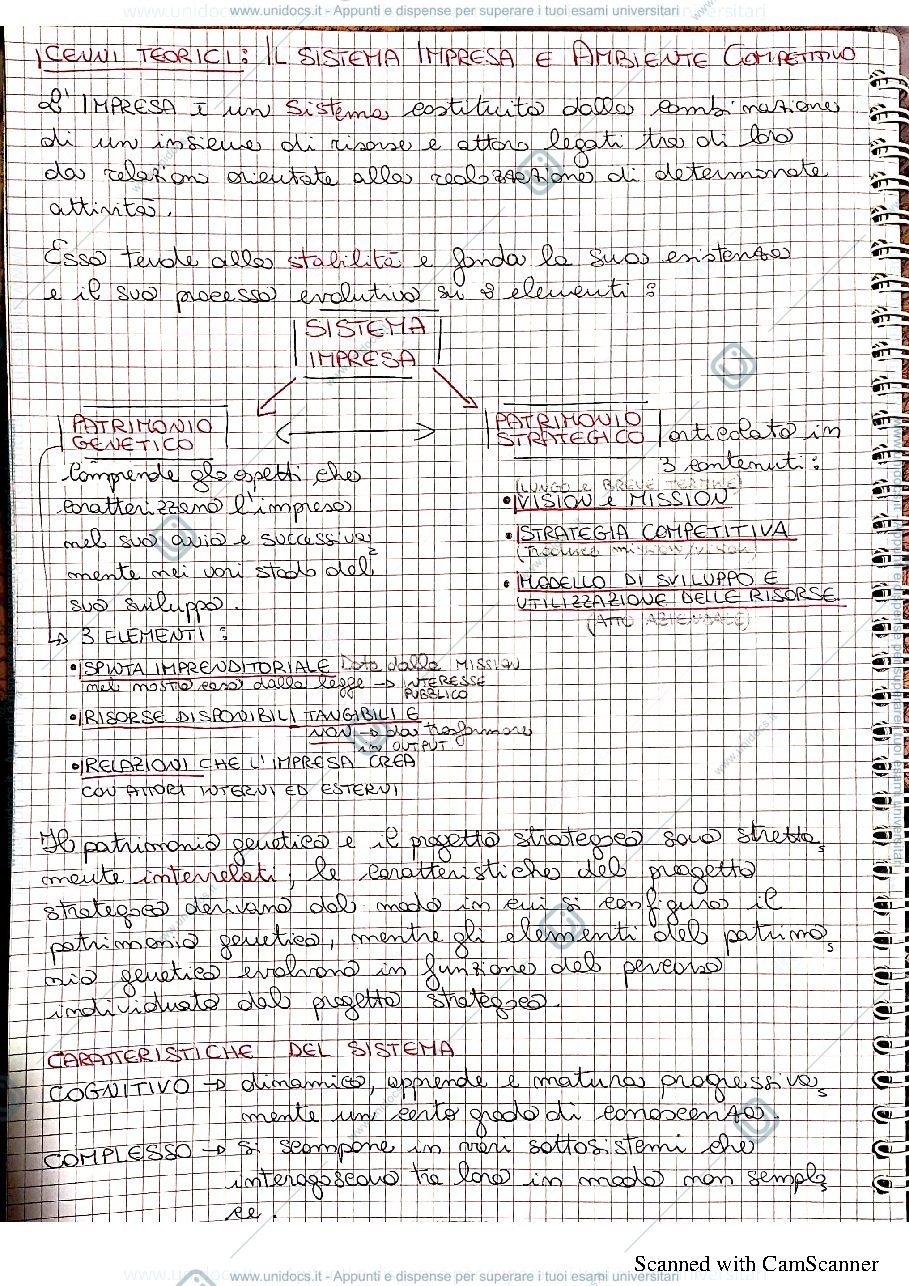 www.unidocs.it - Appunti e dispense per superare i tuoi esami universitari
CENNI TEORICI: IL SISTEMA IMPRESA E AMBIENTE COMPETITIVO
L'IMPRESA È un sistema costituito dalla combinazione
di un insieme di risorse e attori legati tra di loro
da relazioni orientate alla realizzazione di determinate
attività.
Essa tende alla stabilità e fonda la sua esistenza
e il suo processo evolutivo su 2 elementi:
SISTEMA
IMPRESA
PATRIMONIO
GENETICO
Comprende gli aspetti che
caratterizzano l'impresa
nel suo avvio e successiva
mente nei vari stadi del
suo sviluppo.
→ 3 ELEMENTI:
• SPINTA IMPRENDITORIALE Data dalla MISSION
nel nostro caso dalla legge → INTERESSE
PUBBLICO
• RISORSE DISPONIBILI TANGIBILI E
NON → da trasformare
in OUTPUT
• RELAZIONI CHE L'IMPRESA CREA
CON ATTORI INTERNI ED ESTERNI
PATRIMONIO
STRATEGICO articolato in
3 contenuti:
(LUNGO e BREVE TERMINE)
• VISION e MISSION
• STRATEGIA COMPETITIVA
(traduce mission/vision)
• MODELLO DI SVILUPPO E
UTILIZZAZIONE DELLE RISORSE
(ATTO AZIENDALE)
Il patrimonio genetico e il progetto strategico sono stretta
mente interrelati; le caratteristiche del progetto
strategico derivano dal modo in cui si configura il
patrimonio genetico, mentre gli elementi del patrimo
nio genetico evolvono in funzione del percorso
individuato dal progetto strategico.
CARATTERISTICHE DEL SISTEMA
COGNITIVO → dinamico, apprende e matura progressiva
mente un certo grado di conoscenza.
COMPLESSO → si scompone in vari sottosistemi che
interagiscono tra loro in modo non sempli
ce.
Scanned with CamScanner
www.unidocs.it - Appunti e dispense per superare i tuoi esami universitari